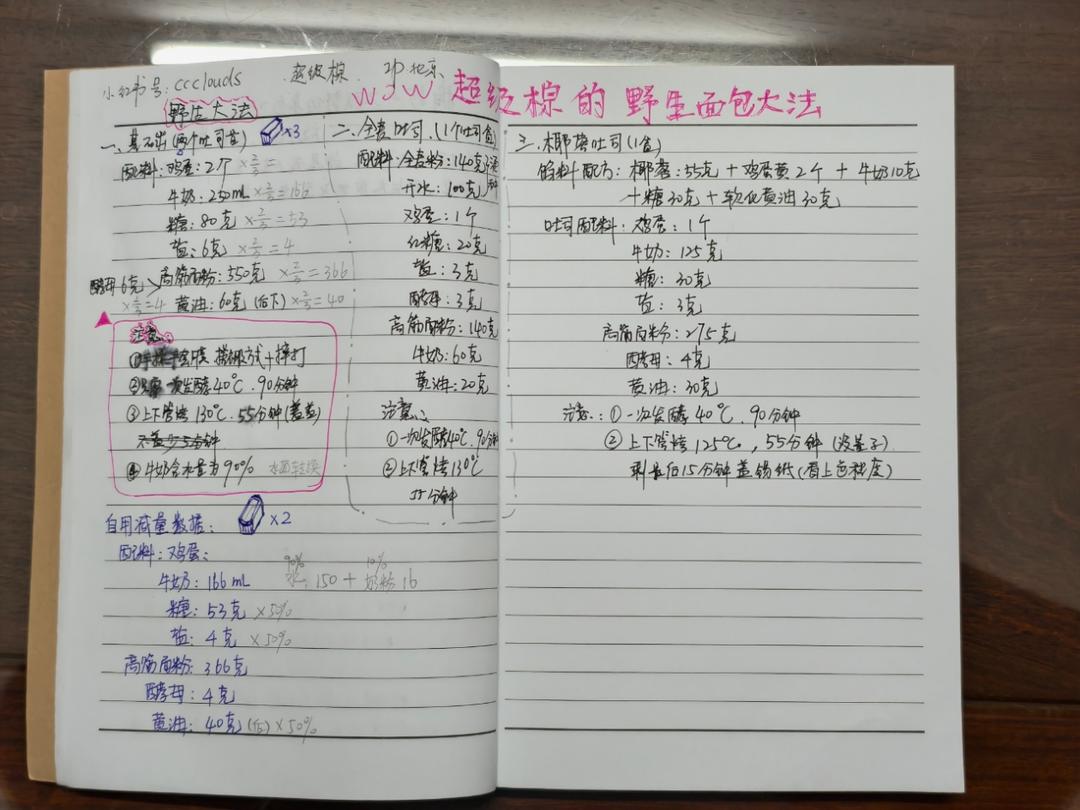 小红书号：ccclouds 超级棕 IP北京
野生大法
WOW 超级棕的野生面包大法
一、基础（两个吐司盒） ×3
配料：鸡蛋：2个 ×2/3=
牛奶：250mL ×2/3=166
糖：80克 ×2/3=53
盐：6克 ×2/3=4
酵母6克 > 高筋面粉：550克 ×2/3=366
×2/3=4 黄油：60克（后下）×2/3=40
注意：
① 手套膜 搓衣服方式+摔打
② 一次发酵40℃、90分钟
③ 上下管烤130℃、55分钟（盖盖）
不盖少5分钟
④ 牛奶含水量为90%
自用减量数据： ×2
配料：鸡蛋：
牛奶：166mL 90%水：150 + 10%奶粉16
糖：53克 ×50%
盐：4克 ×50%
高筋面粉：366克
酵母：4克
黄油：40克（后）×50%
二、全麦吐司（1个吐司盒）
配料：全麦粉：140克
开水：100克
鸡蛋：1个
红糖：20克
盐：3克
酵母：3克
高筋面粉：140克
牛奶：60克
黄油：20克
注意：
① 一次发酵40℃、90分钟
② 上下管烤130℃
55分钟
三、椰蓉吐司（1盒）
馅料配方：椰蓉：55克+鸡蛋黄2个+牛奶10克
+糖30克+软化黄油30克
吐司配料：鸡蛋：1个
牛奶：125克
糖：30克
盐：3克
高筋面粉：275克
酵母：4克
黄油：30克
注意：① 一次发酵40℃、90分钟
② 上下管烤125℃，55分钟（没盖子）
剩最后15分钟盖锡纸（看上色程度）